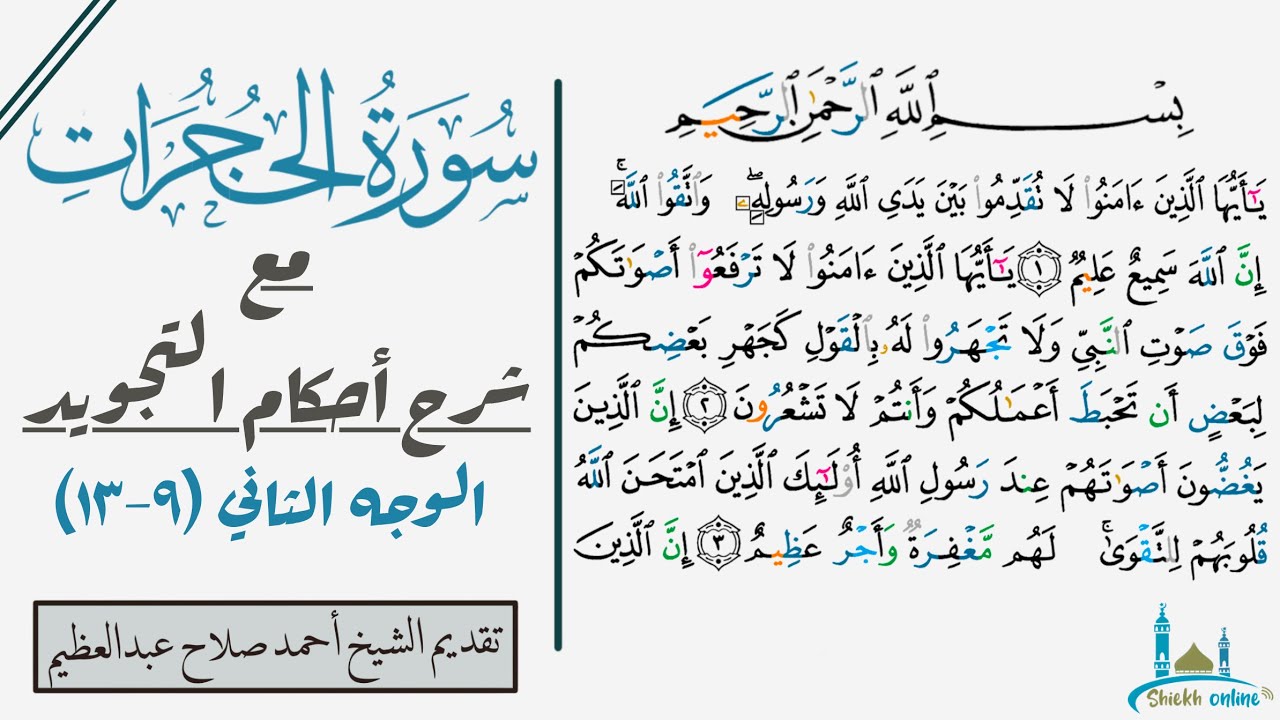 سُورَةُ الحُجُرَاتِ
مع
شرح أحكام التجويد
الوجه الثاني (٩-١٣)
تقديم الشيخ أحمد صلاح عبدالعظيم
بِسْمِ ٱللَّهِ ٱلرَّحْمَٰنِ ٱلرَّحِيمِ
يَٰٓأَيُّهَا ٱلَّذِينَ ءَامَنُوا۟ لَا تُقَدِّمُوا۟ بَيْنَ يَدَىِ ٱللَّهِ وَرَسُولِهِۦۖ وَٱتَّقُوا۟ ٱللَّهَۚ
إِنَّ ٱللَّهَ سَمِيعٌ عَلِيمٌ ١ يَٰٓأَيُّهَا ٱلَّذِينَ ءَامَنُوا۟ لَا تَرْفَعُوٓا۟ أَصْوَٰتَكُمْ
فَوْقَ صَوْتِ ٱلنَّبِىِّ وَلَا تَجْهَرُوا۟ لَهُۥ بِٱلْقَوْلِ كَجَهْرِ بَعْضِكُمْ
لِبَعْضٍ أَن تَحْبَطَ أَعْمَٰلُكُمْ وَأَنتُمْ لَا تَشْعُرُونَ ٢ إِنَّ ٱلَّذِينَ
يَغُضُّونَ أَصْوَٰتَهُمْ عِندَ رَسُولِ ٱللَّهِ أُو۟لَٰٓئِكَ ٱلَّذِينَ ٱمْتَحَنَ ٱللَّهُ
قُلُوبَهُمْ لِلتَّقْوَىٰۚ لَهُم مَّغْفِرَةٌ وَأَجْرٌ عَظِيمٌ ٣ إِنَّ ٱلَّذِينَ
Shiekh online